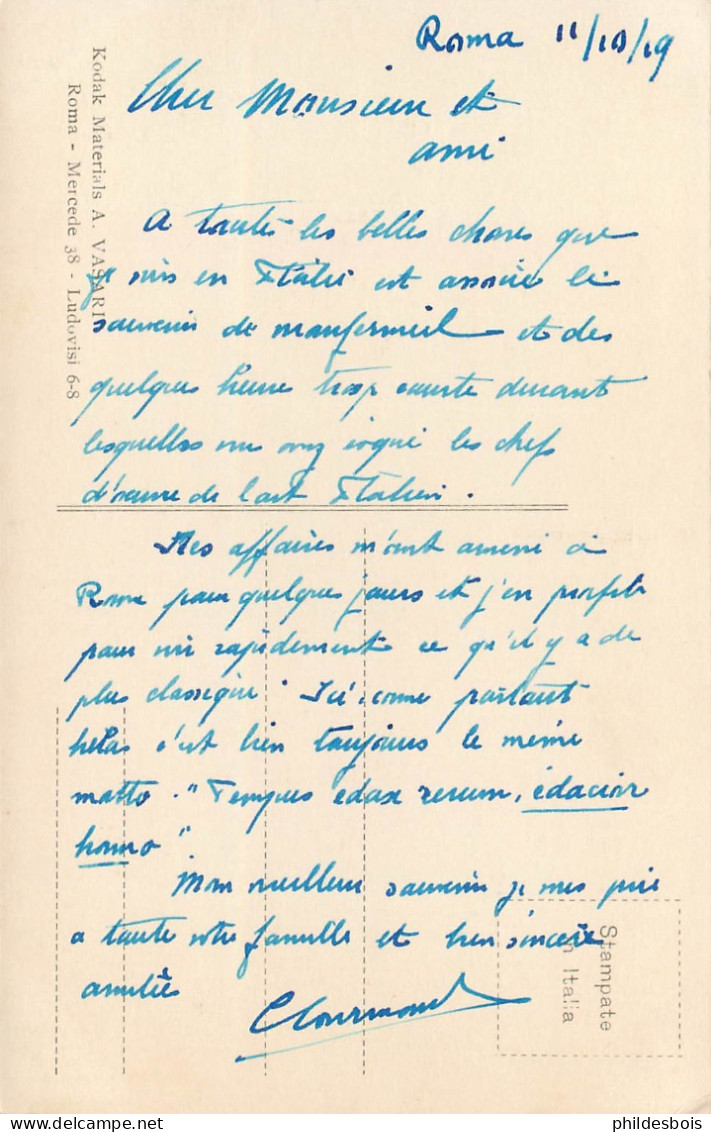 Roma 11/10/19
Cher Monsieur et
ami
A toutes les belles choses que
je vois en Italie est associé le
souvenir de Monfermeil et des
quelques heures trop courte durant
lesquelles vous avez évoqué les chefs
d'oeuvre de l'art Italien.
Mes affaires m'ont amené à
Rome pour quelques jours et j'en profite
pour voir rapidement ce qu'il y a de
plus classique. Ici, come partout
helas c'est bien toujours le même
motto. "Tempus edax rerum, edacior
homo"
Mon meilleur souvenir je vous prie
a toute votre famille et bien sincère
amitiés
Kodak Materials A. VASARI
Roma - Mercede 38 - Ludovisi 6-8
Stampate
in Italia
phildesbois